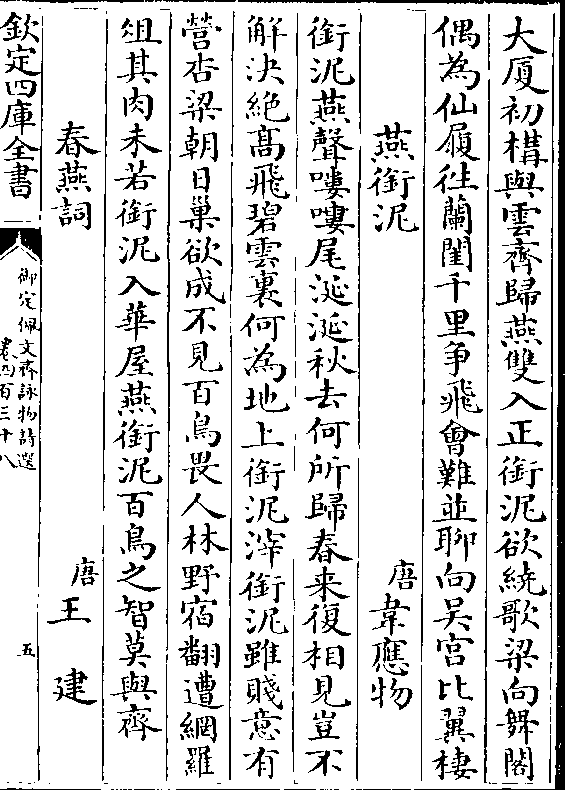 大厦初構與雲齊歸燕雙入正銜泥欲繞歌梁向舞閣
偶為仙履往蘭閨千里争飛會難並聊向吴宫比翼棲
燕銜泥
唐韋應物
銜泥燕聲嘍嘍尾涎涎秋去何所歸春来復相見豈不
解决絶髙飛碧雲裏何為地上銜泥滓銜泥雖賤意有
營杏梁朝日巢欲成不見百鳥畏人林野宿翻遭網羅
俎其肉未若銜泥入華屋燕銜泥百鳥之智莫與齊
春燕詞
唐王建
欽定四庫全書
御定佩文齋詠物詩選
卷四百三十八
五